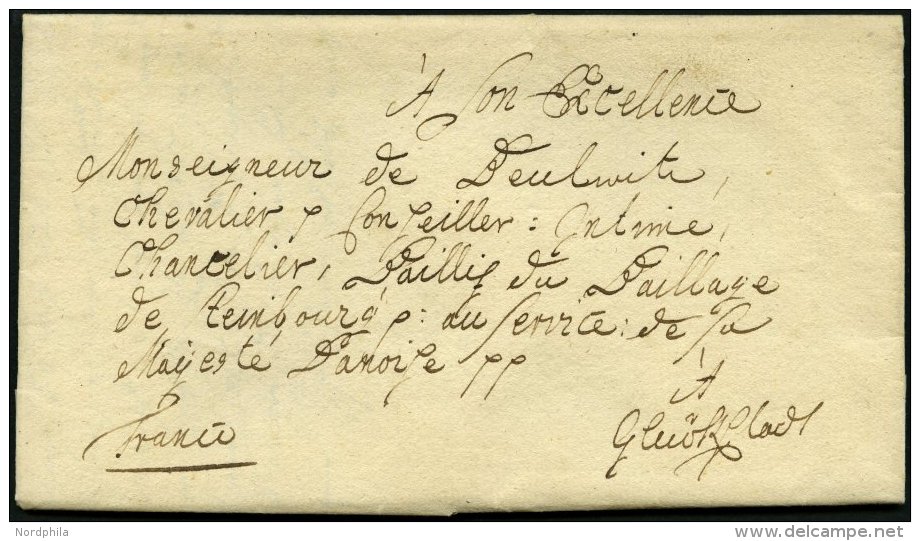 À Son Excellence
Monseigneur de Deulwitz,
Chevalier p Conseiller: Intime,
Chancelier, Baillif du Baillage
de Reinbourg p: au Service: de Sa
Majesté Danoise pp
À
France Glückstadt
Nordphila
delcampe.net